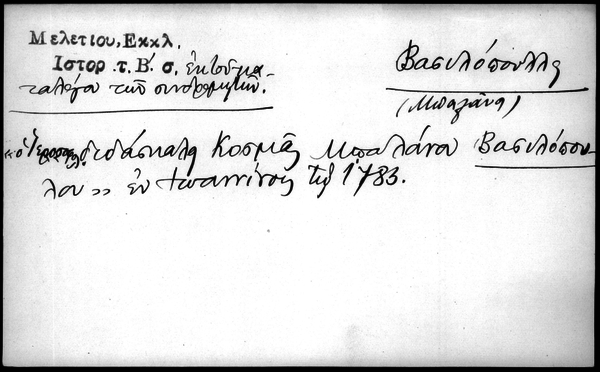 Μελετίου, Εκκλ.
Ιστορ. τ. Β΄. σ. ἐκ τοῦ κα-
ταλόγου τῶν συνδρομητῶν.
Βασιλόπουλος
(Μπαλάνος)
διδάσκαλος Κοσμᾶς Μπαλάνου Βασιλοπού-
λου» ἐν Ἰωαννίνοις τῷ 1783.